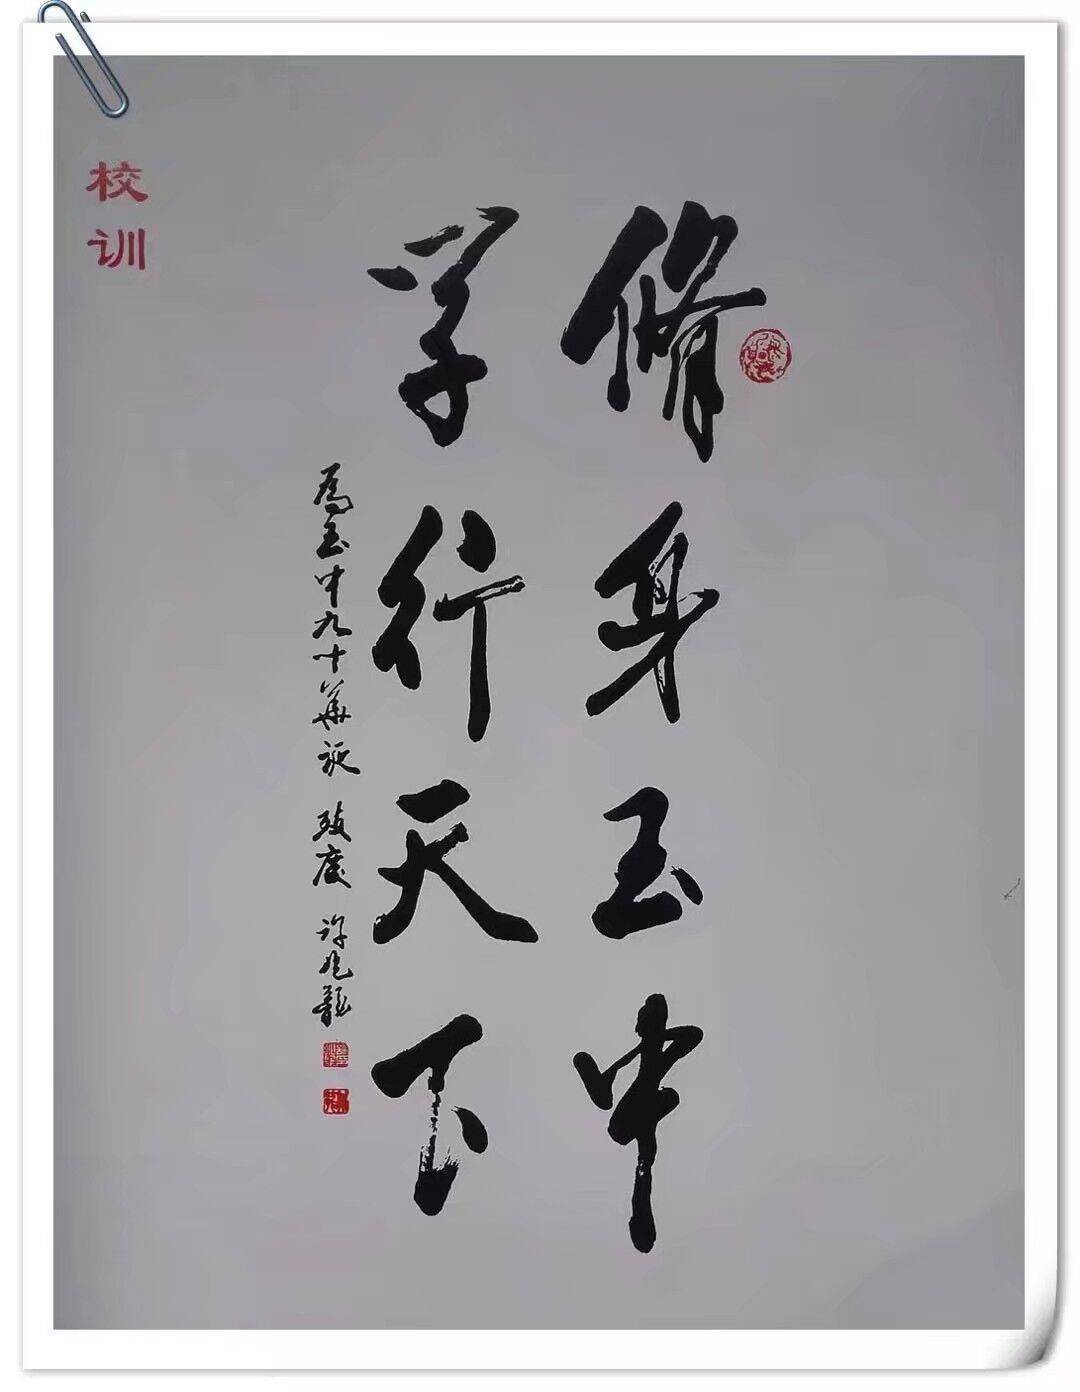 校训
脩身玉中
学行天下
為玉中九十華誕 致慶 许龍